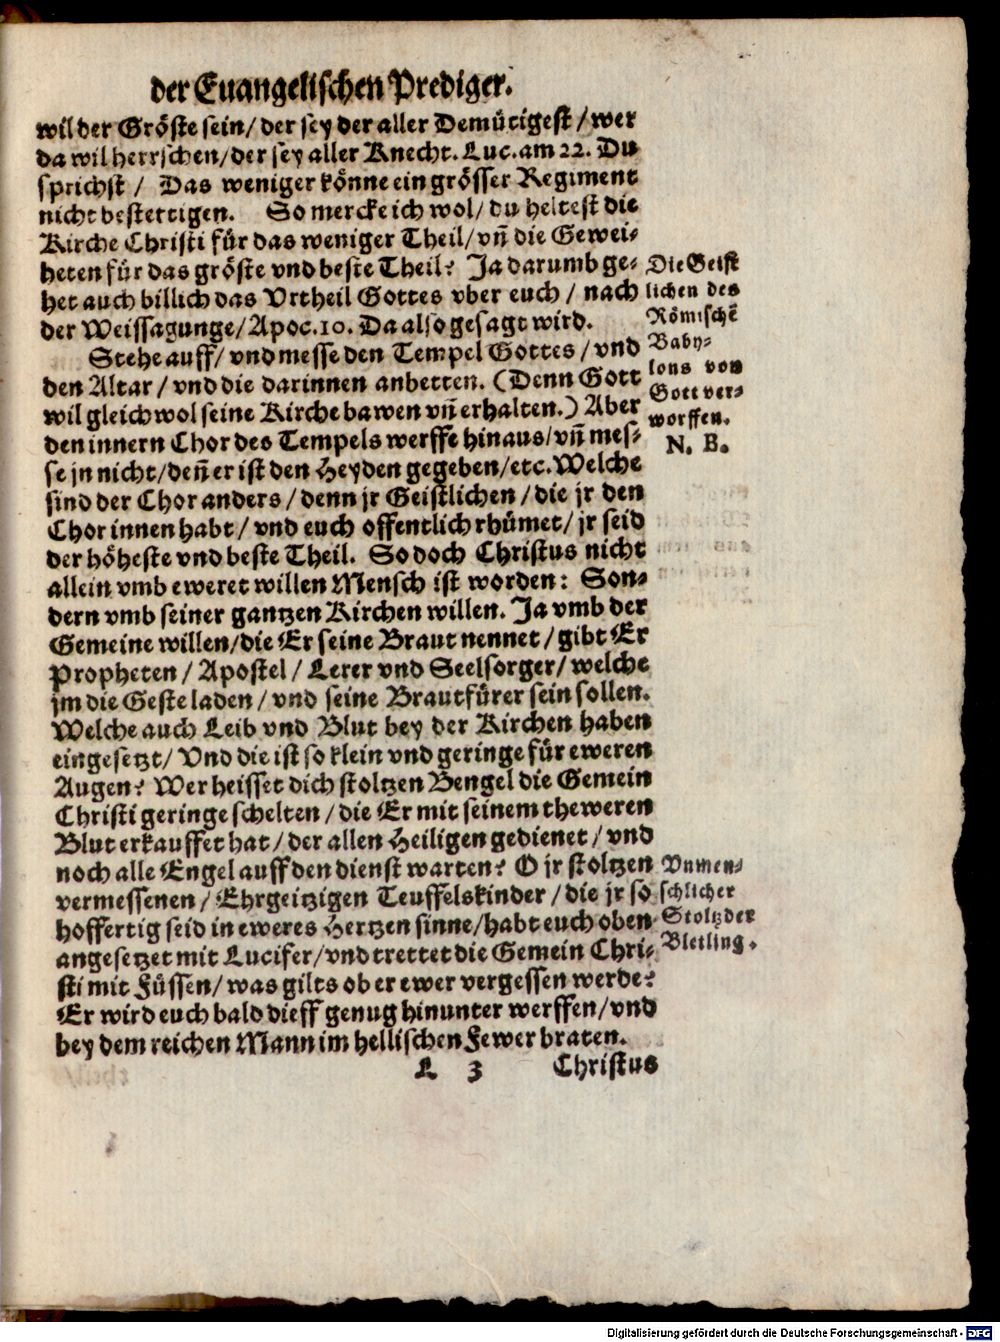 der Euangelischen Prediger.
wil der Gröste sein/ der sey der aller Demütigest / wer
da wil herrschen/ der sey aller Knecht. Luc. am 22. Du
sprichst / Das weniger könne ein grösser Regiment
nicht bestettigen. So mercke ich wol/ du heltest die
Kirche Christi für das weniger Theil/ vñ die Gewei-
heten für das gröste vnd beste Theil? Ja darumb ge-
het auch billich das Vrtheil Gottes vber euch / nach
der Weissagunge/ Apoc. 10. Da also gesagt wird.
Die Geist
lichen des
Römischẽ
Baby-
lons von
Gott ver-
worffen.
N. B.
Stehe auff/ vnd messe den Tempel Gottes / vnd
den Altar / vnd die darinnen anbetten. (Denn Gott
wil gleichwol seine Kirche bawen vñ erhalten.) Aber
den innern Chor des Tempels werffe hinaus/ vñ mes-
se jn nicht/ deñ er ist den Heyden gegeben/ etc. Welche
sind der Chor anders / denn jr Geistlichen / die jr den
Chor innen habt / vnd euch offentlich rhümet/ jr seid
der höheste vnd beste Theil. So doch Christus nicht
allein vmb eweret willen Mensch ist worden: Son-
dern vmb seiner gantzen Kirchen willen. Ja vmb der
Gemeine willen/ die Er seine Braut nennet / gibt Er
Propheten / Apostel / Lerer vnd Seelsorger/ welche
jm die Geste laden / vnd seine Brautfürer sein sollen.
Welche auch Leib vnd Blut bey der Kirchen haben
eingesetzt/ Vnd die ist so klein vnd geringe für eweren
Augen? Wer heisset dich stoltzen Bengel die Gemein
Christi geringe schelten / die Er mit seinem theweren
Blut erkauffet hat / der allen Heiligen gedienet / vnd
noch alle Engel auff den dienst warten? O jr stoltzen
vermessenen / Ehrgeitzigen Teuffelskinder / die jr so
hoffertig seid in eweres Hertzen sinne/ habt euch oben
angesetzet mit Lucifer/ vnd trettet die Gemein Chri-
sti mit Füssen/ was gilts ob er ewer vergessen werde?
Er wird euch bald dieff genug hinunter werffen/ vnd
bey dem reichen Mann im hellischen Fewer braten.
Vnmen-
schlicher
Stoltz der
Bletling.
L 3 Christus
Digitalisierung gefördert durch die Deutsche Forschungsgemeinschaft - DFG